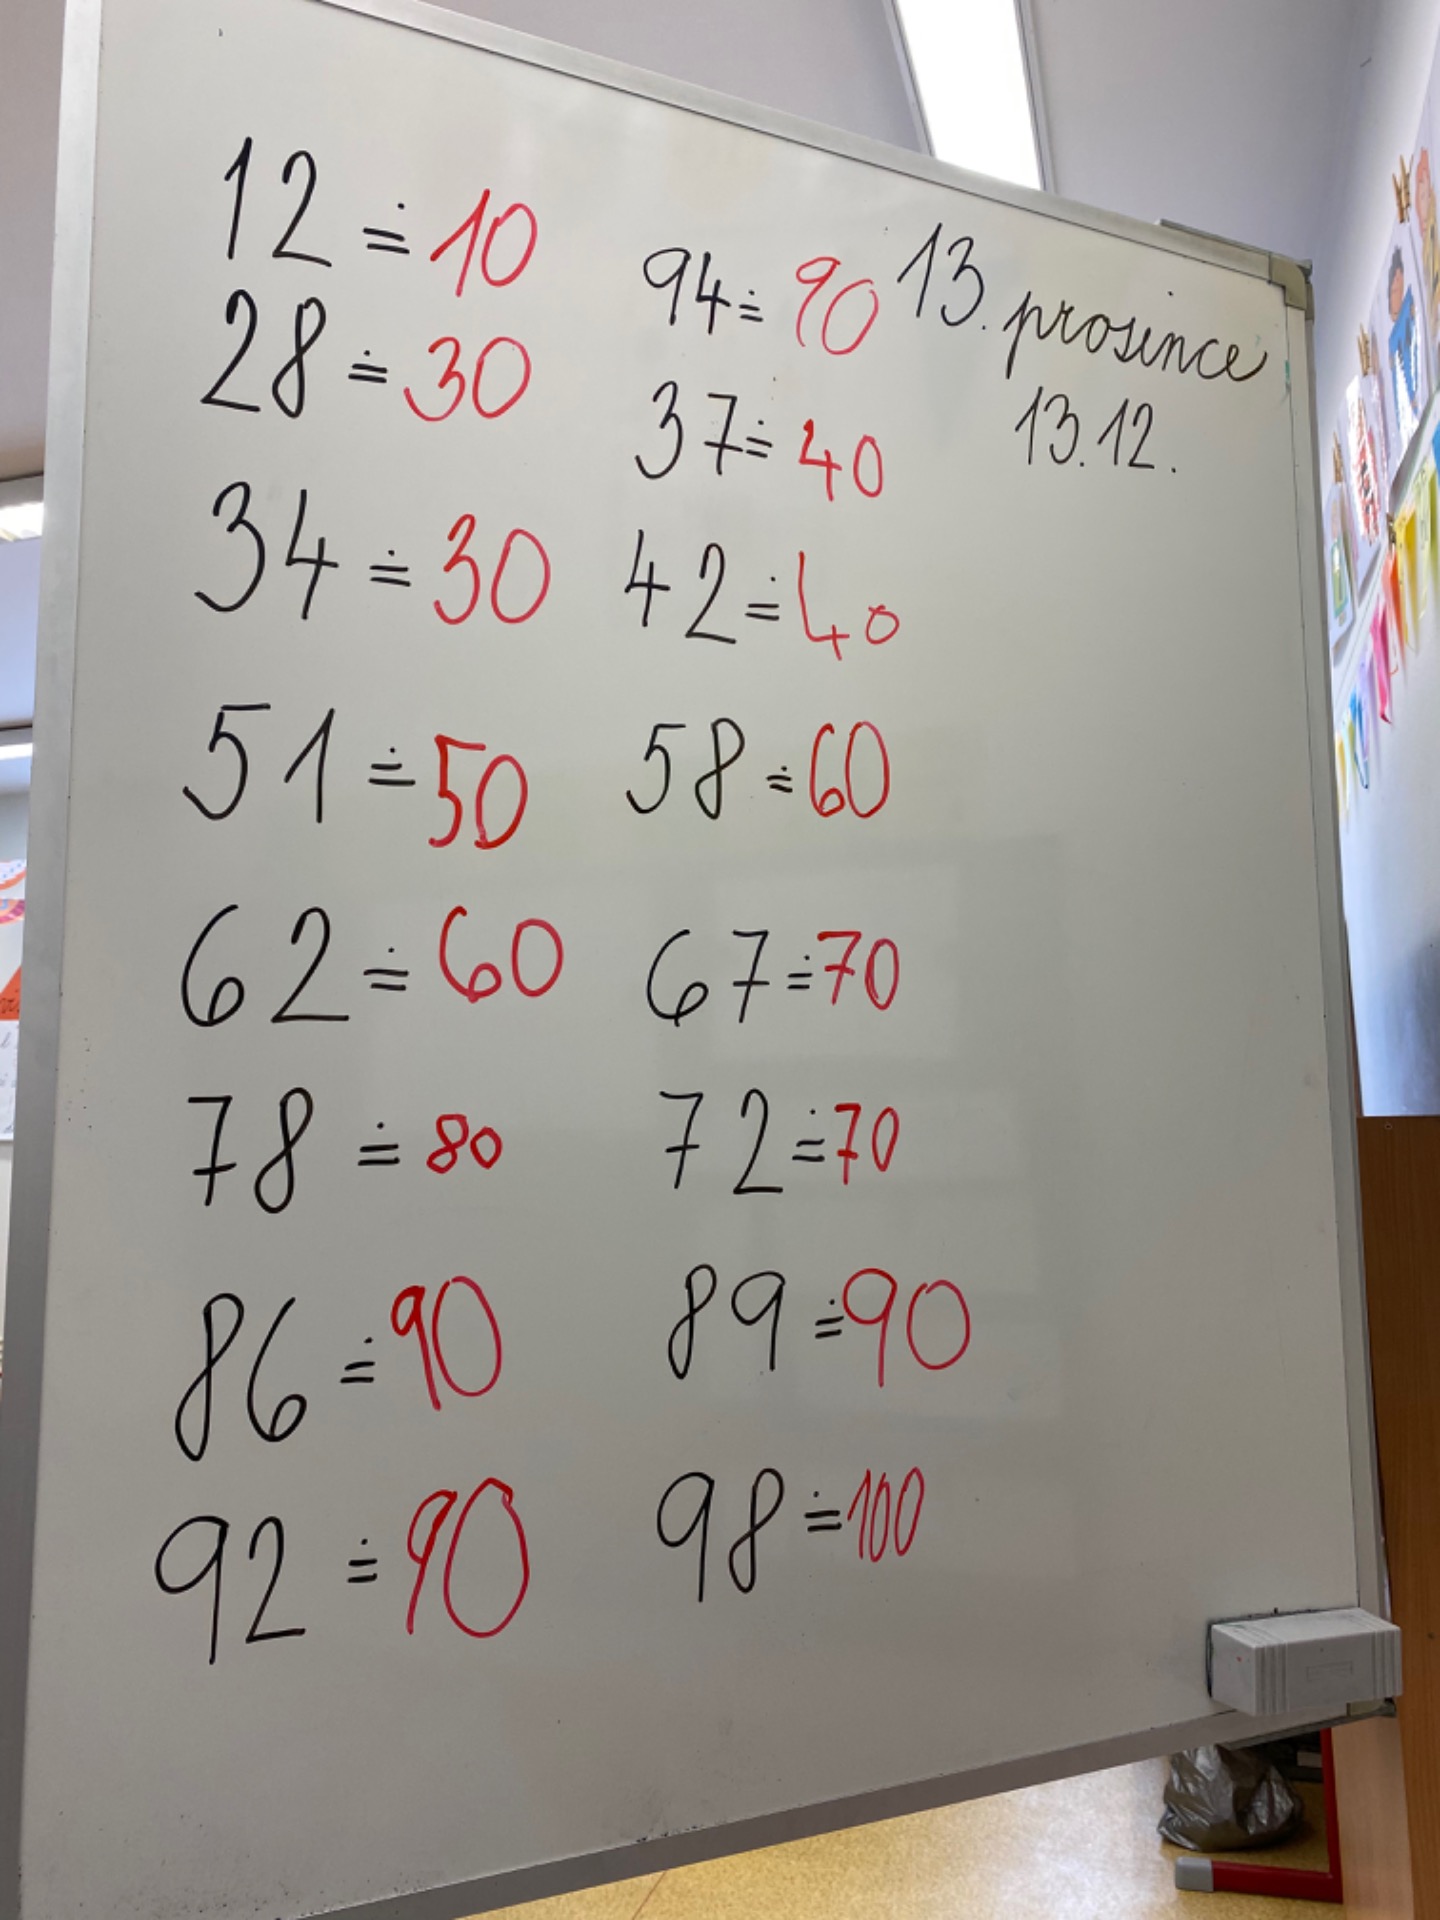 12 ≐ 10
28 ≐ 30
34 ≐ 30
51 ≐ 50
62 ≐ 60
78 ≐ 80
86 ≐ 90
92 ≐ 90
94 ≐ 90
37 ≐ 40
42 ≐ 40
58 ≐ 60
67 ≐ 70
72 ≐ 70
89 ≐ 90
98 ≐ 100
13. prosince
13.12.